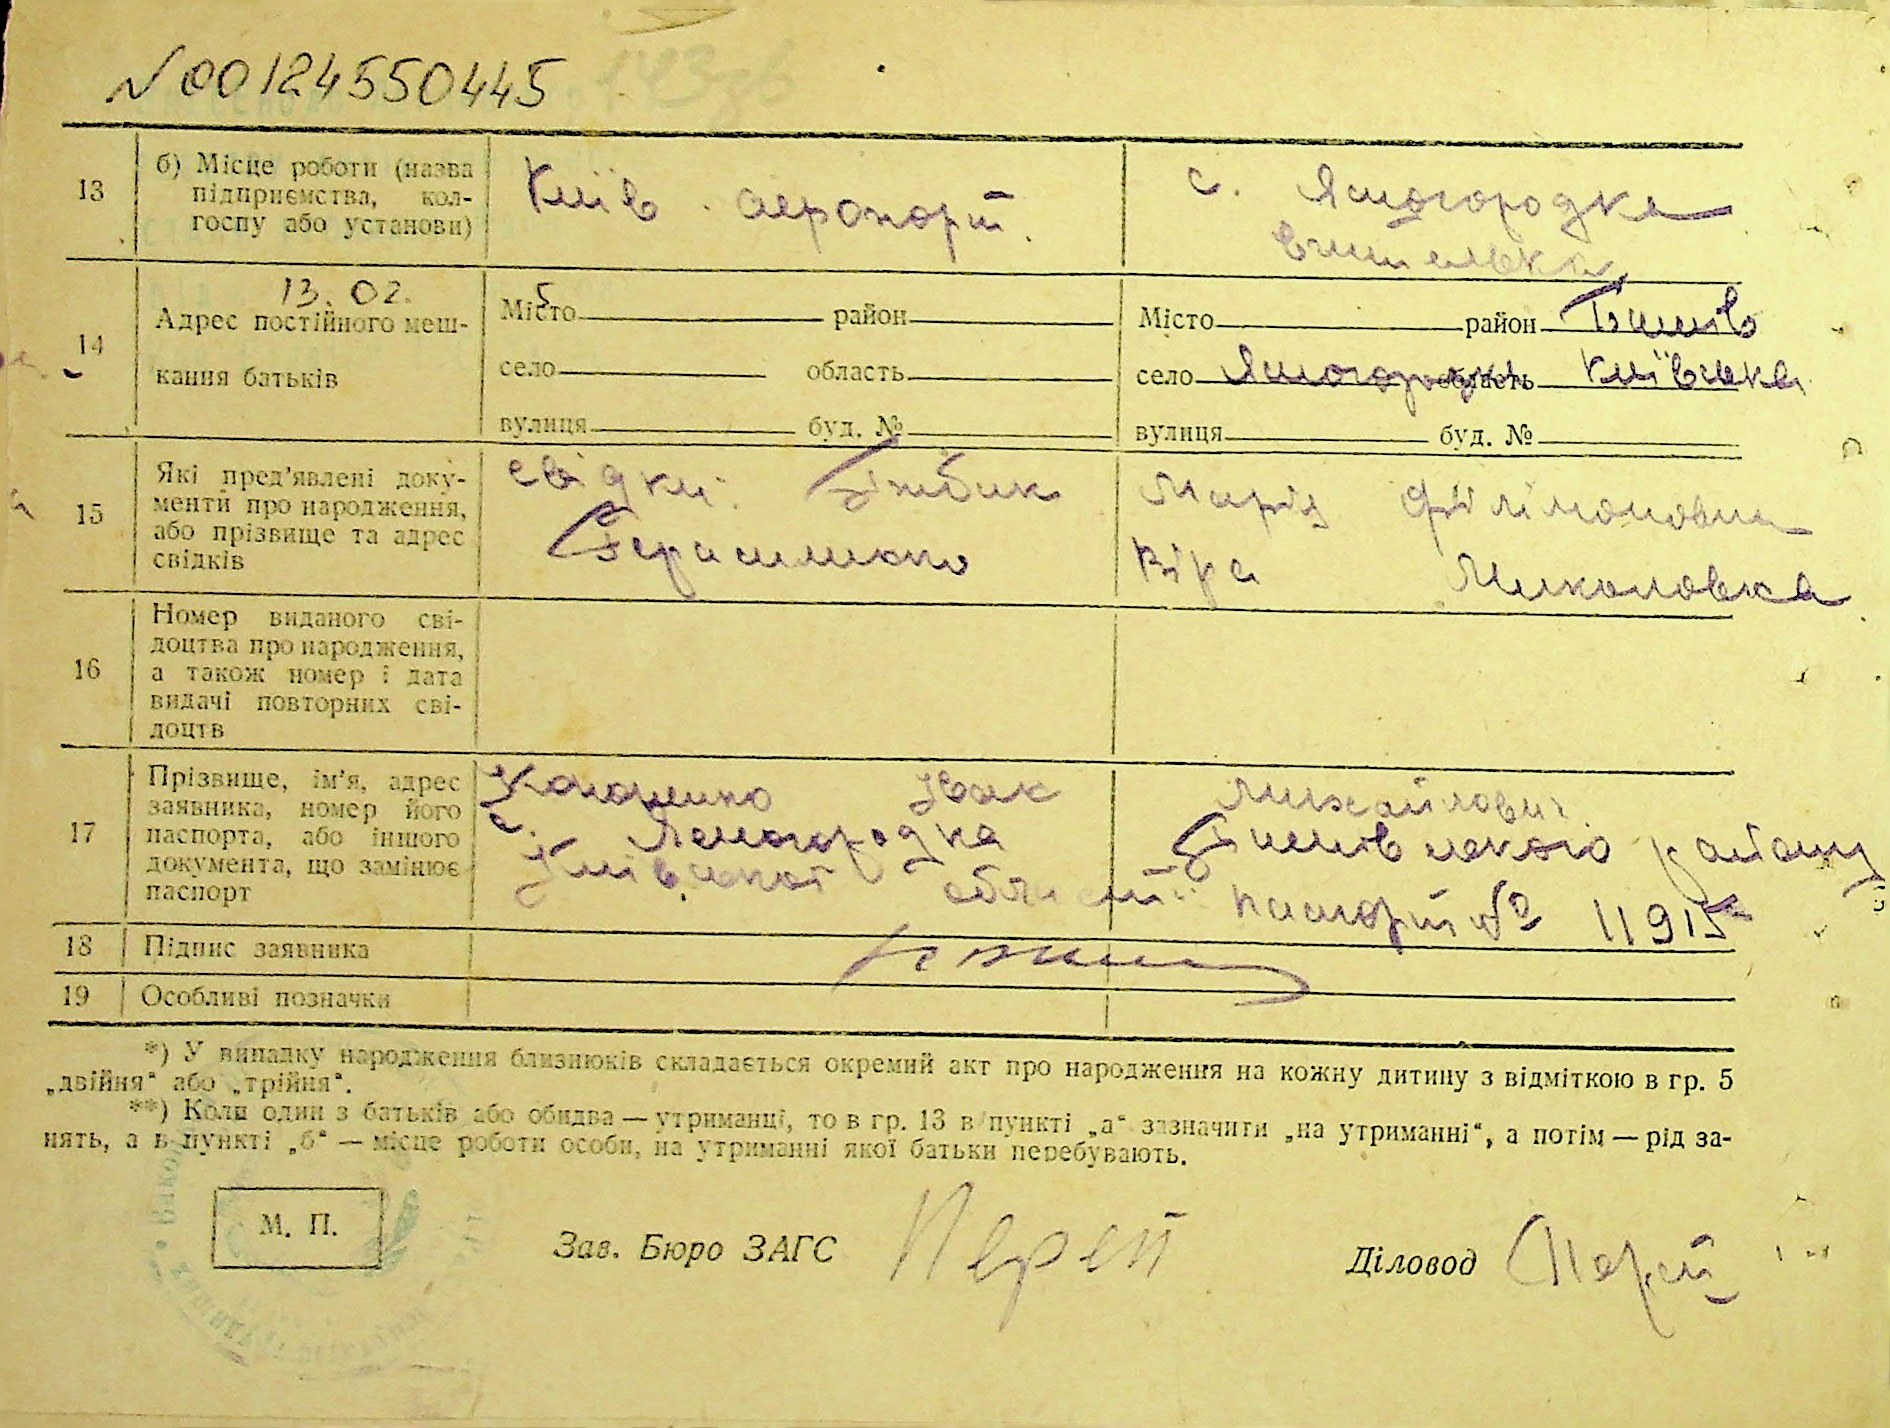 N00124550445
13
б) Місце роботи (назва
підприємства, кол-
госпу або установи)
Київ. аеропорт.
с. Ясногородка
вчителька
14
13.02.
Адрес постійного меш-
кання батьків
Місто район
село область
вулиця буд. №
Місто район
село Ясногородка область Київська
вулиця буд. №
15
Які пред'явлені доку-
менти про народження,
або прізвище та адрес
свідків
свідки:
Марія Філімоновна
Герасименко Віра Миколовна
16
Номер виданого сві-
доцтва про народження,
а також номер і дата
видачі повторних сві-
доцтв
17
Прізвище, ім'я, адрес
заявника, номер його
паспорта, або іншого
документа, що замінює
паспорт
Кононенко Іван Михайлович
с. Ясногородка району
Київської області паспорт №
18
Підпис заявника
19
Особливі позначки
*) У випадку народження близнюків складається окремий акт про народження на кожну дитину з відміткою в гр. 5
„двійня“ або „трійня“.
**) Коли один з батьків або обидва — утриманці, то в гр. 13 в пункті „а“ зазначити „на утриманні“, а потім — рід за-
нять, а в пункті „б“ — місце роботи особи, на утриманні якої батьки перебувають.
М. П.
Зав. Бюро ЗАГС
Діловод